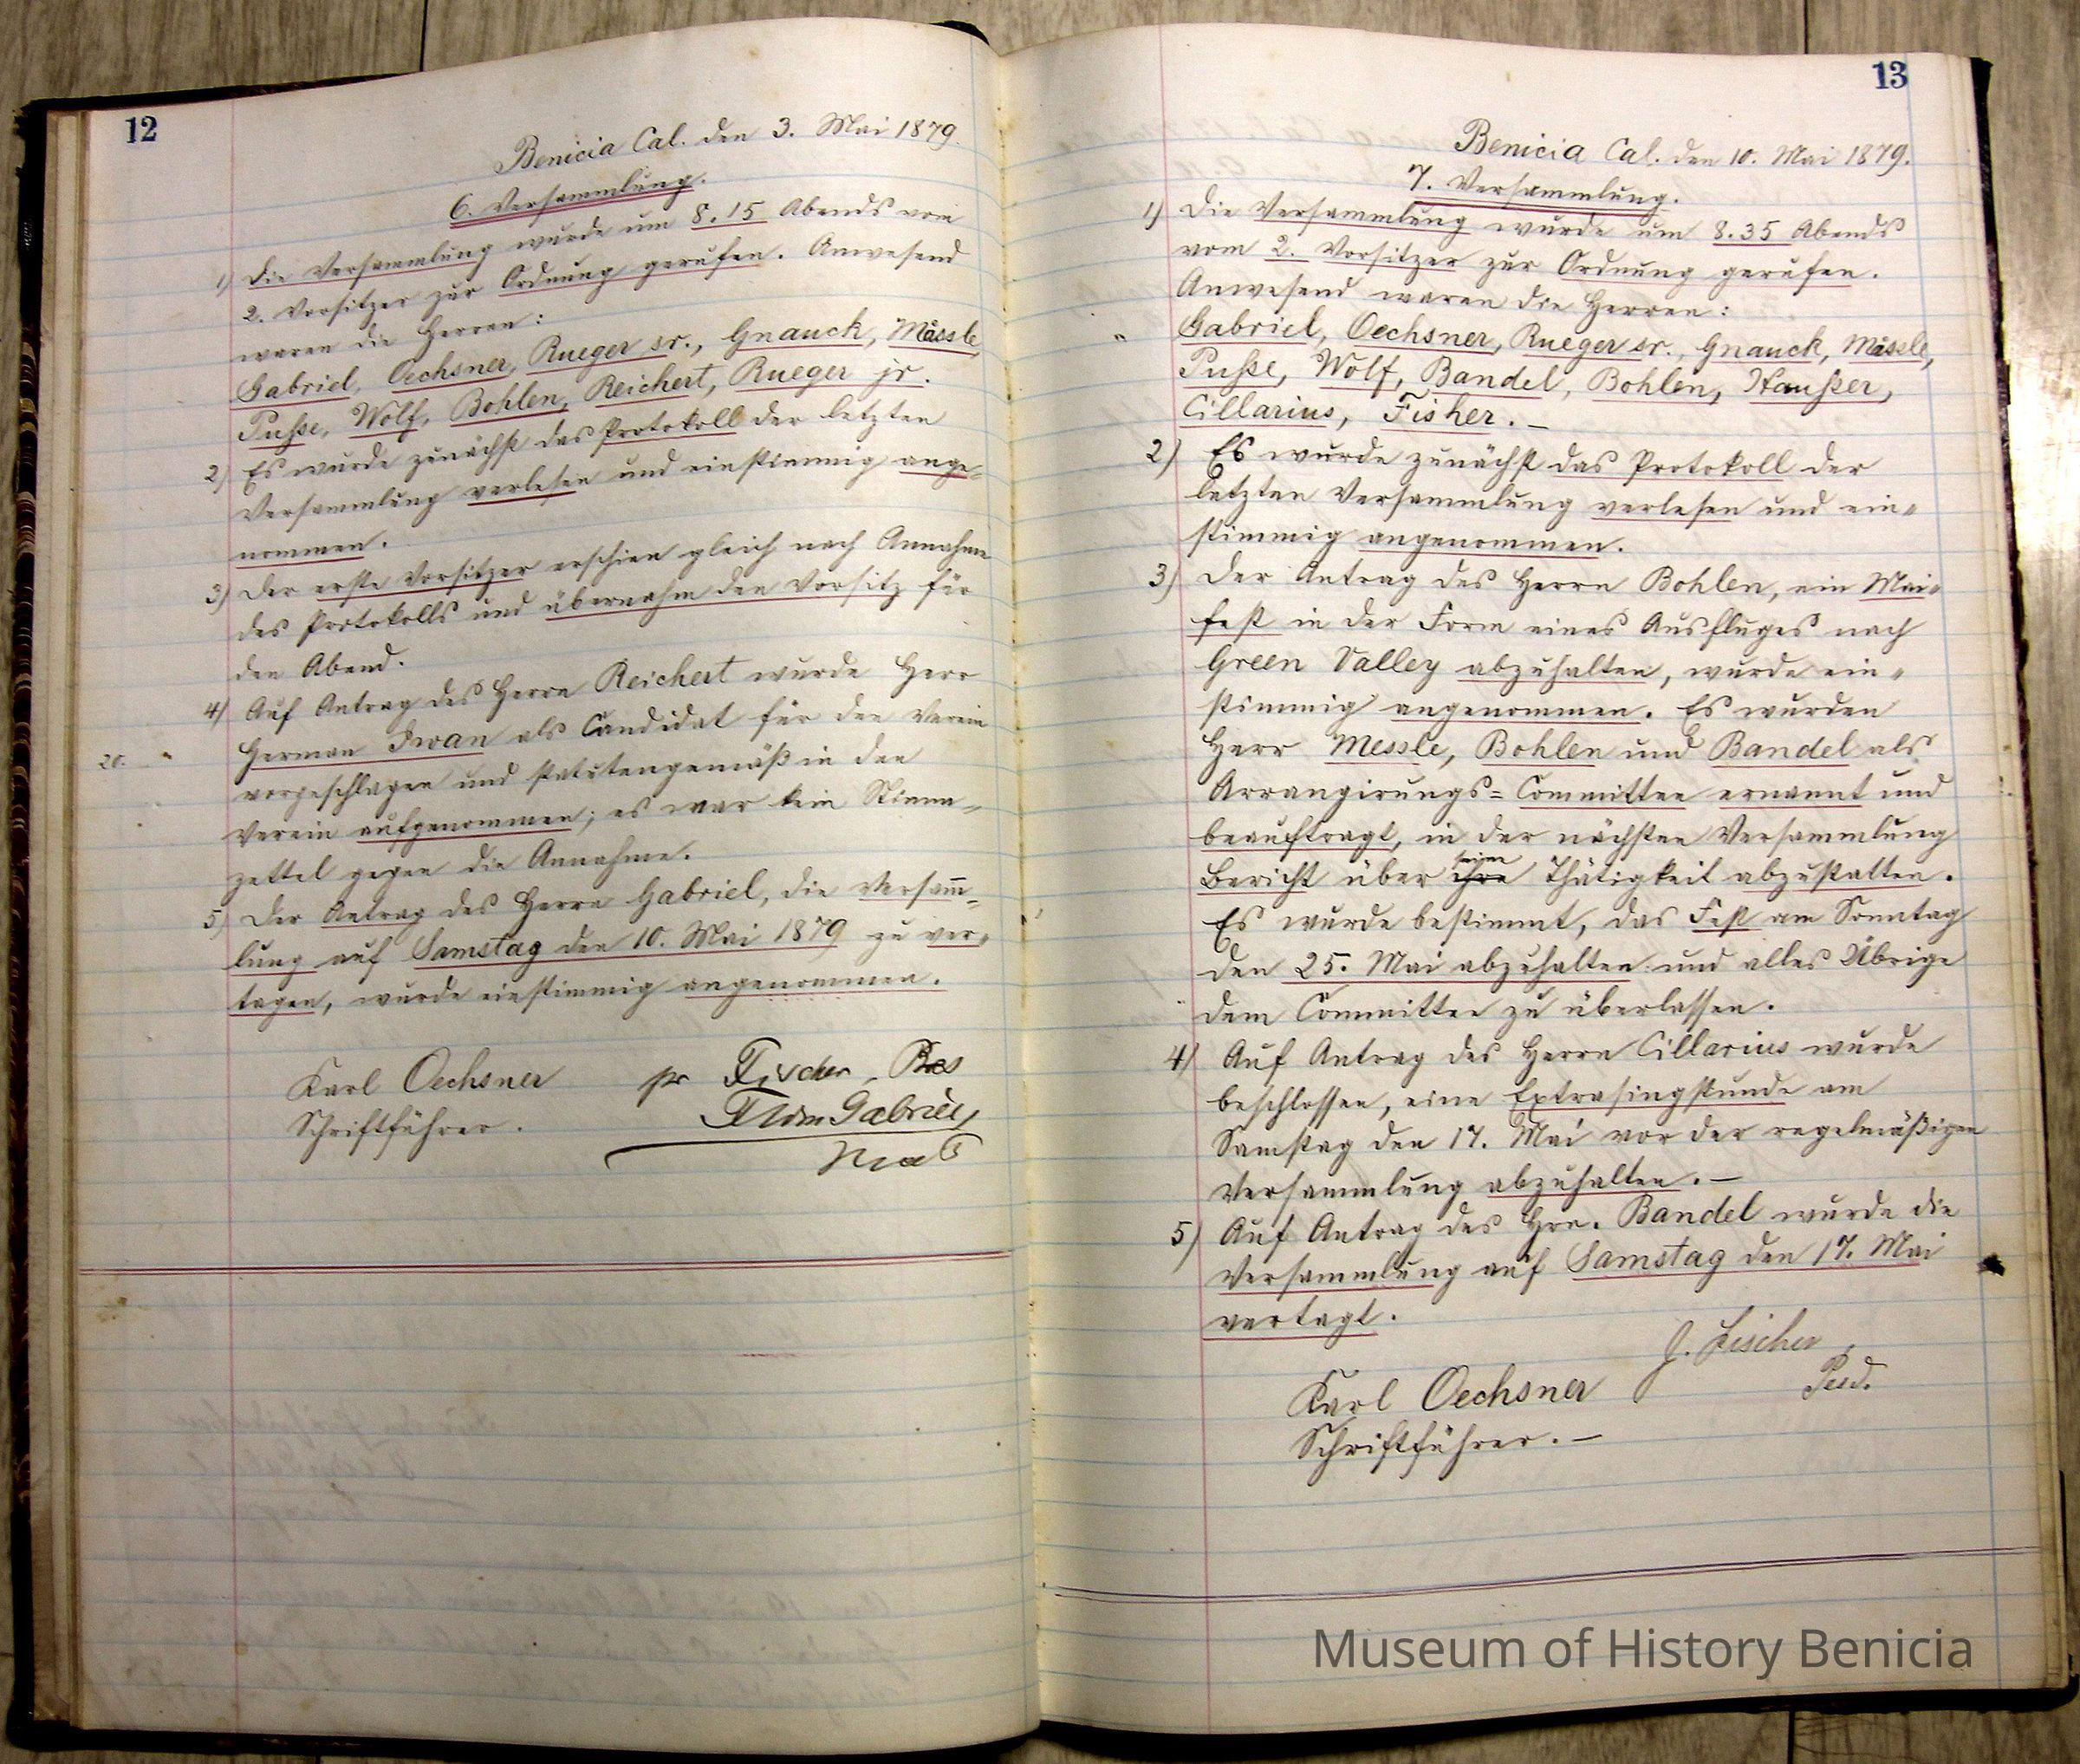 12
Benicia Cal. den 3. Mai 1879.
6. Versammlung.
1) Die Versammlung wurde um 8.15 Abends vom
2. Vorsitzer zur Ordnung gerufen. Anwesend
waren die Herren:
Gabriel, Oechsner, Rueger sr., Gnauck, Mässle,
Puhse, Wolf, Bohlen, Reichert, Rueger jr.
2) Es wurde zunächst das Protokoll der letzten
Versammlung verlesen und einstimmig ange-
nommen.
3) Der erste Vorsitzer erschien gleich nach Annahme
des Protokolls und übernahm den Vorsitz für
den Abend.
4) Auf Antrag des Herrn Reichert wurde Herr
20. "
Herman Iwan als Candidat für den Verein
vorgeschlagen und statutengemäß in den
Verein aufgenommen; es war kein Stimm-
zettel gegen die Annahme.
5) Der Antrag des Herrn Gabriel, die Versamm-
lung auf Samstag den 10. Mai 1879 zu ver-
tagen, wurde einstimmig angenommen.
Karl Oechsner
Schriftführer.
pr Fischer, Pres
Gabriel,
13
Benicia Cal. den 10. Mai 1879.
7. Versammlung.
1) Die Versammlung wurde um 8.35 Abends
vom 2. Vorsitzer zur Ordnung gerufen.
Anwesend waren die Herren:
" Gabriel, Oechsner, Rueger sr., Gnauck, Mässle,
Puhse, Wolf, Bandel, Bohlen, Haußer,
Cillarius, Fisher. –
2) Es wurde zunächst das Protokoll der
letzten Versammlung verlesen und ein-
stimmig angenommen.
3) Der Antrag des Herrn Bohlen, ein Mai-
fest in der Form eines Ausfluges nach
Green Valley abzuhalten, wurde ein-
stimmig angenommen. Es wurden
Herr Messle, Bohlen und Bandel als
Arrangirungs-Committee ernannt und
beauftragt, in der nächsten Versammlung
Bericht über ihre seine Thätigkeit abzustatten.
Es wurde bestimmt, das Fest am Sonntag
den 25. Mai abzuhalten und alles Übrige
dem Committee zu überlassen.
4) Auf Antrag des Herrn Cillarius wurde
beschlossen, eine Extrasingstunde am
Samstag den 17. Mai vor der regelmäßigen
Versammlung abzuhalten. –
5) Auf Antrag des Hrn. Bandel wurde die
Versammlung auf Samstag den 17. Mai
vertagt.
J. Fischer,
Presd.
Karl Oechsner
Schriftführer. –
Museum of History Benicia